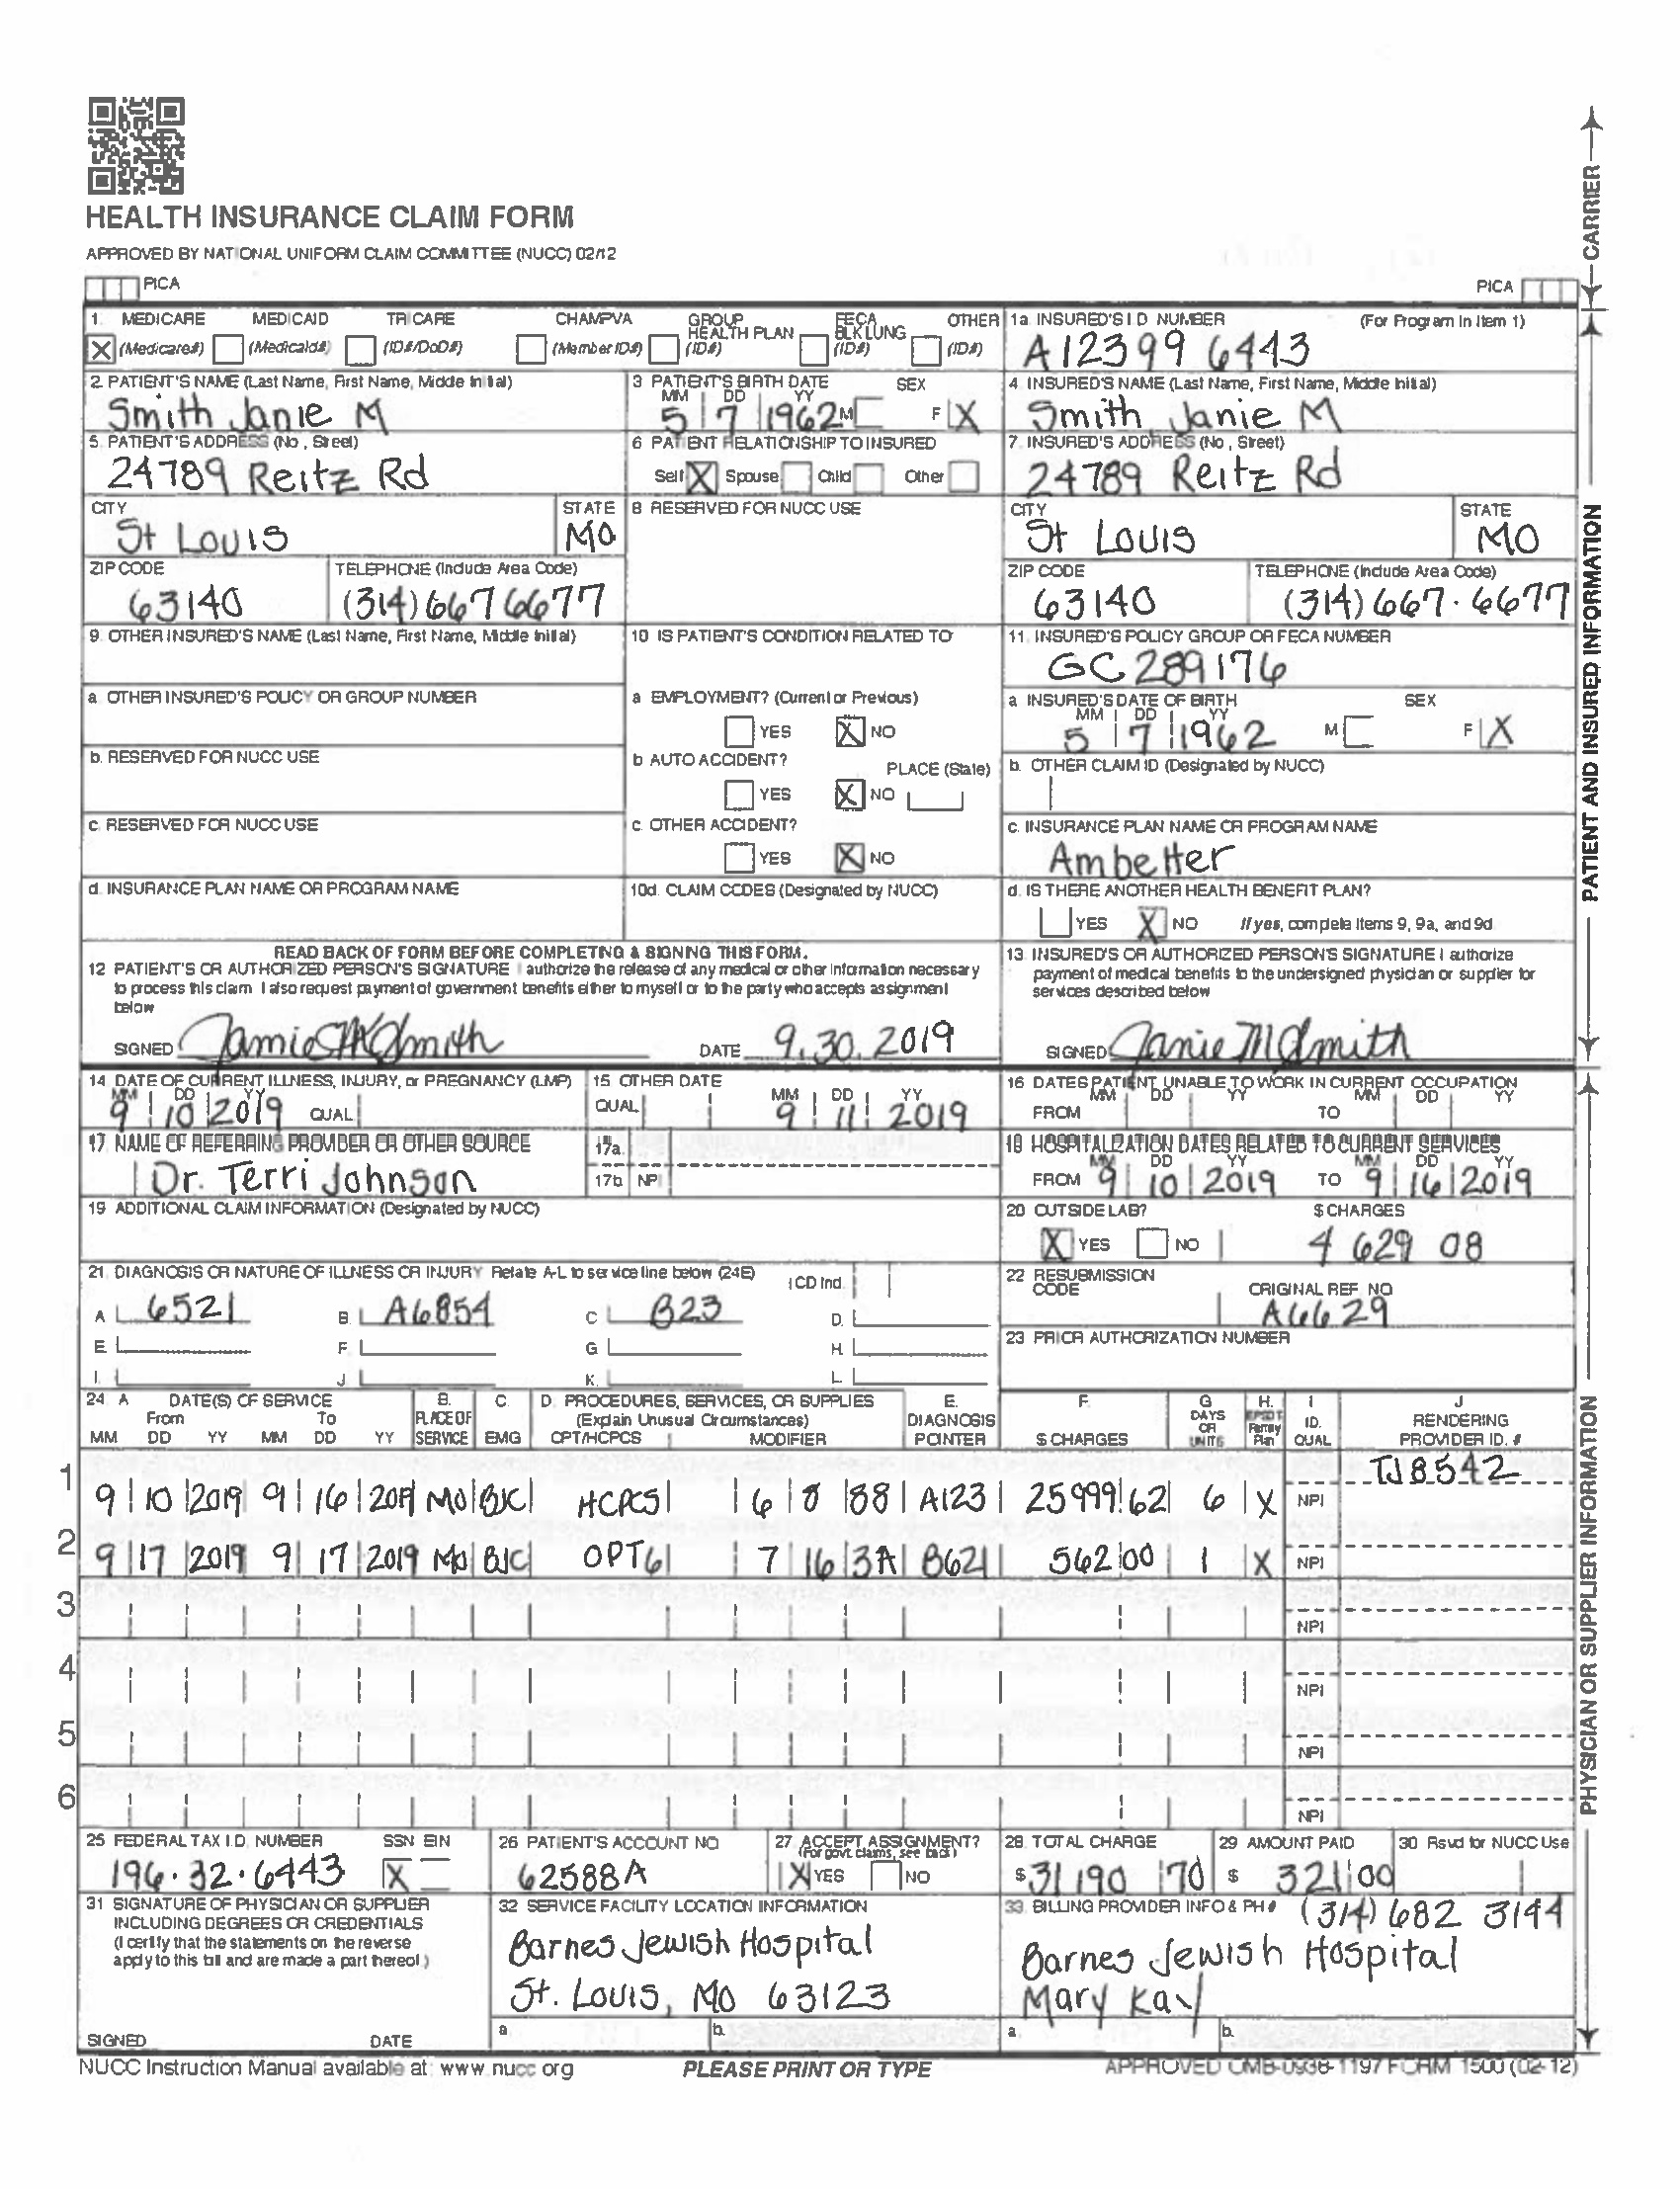 HEALTH INSURANCE CLAIM FORM
APPROVED BY NATIONAL UNIFORM CLAIM COMMITTEE (NUCC) 02/12
PICA
PICA
CARRIER
1. MEDICARE MEDICAID TRICARE CHAMPVA GROUP HEALTH PLAN FECA BLK LUNG OTHER
X (Medicare#) (Medicaid#) (ID#/DoD#) (Member ID#) (ID#) (ID#) (ID#)
1a. INSURED'S I.D. NUMBER (For Program in Item 1)
A12399 6443
2. PATIENT'S NAME (Last Name, First Name, Middle Initial)
Smith Janie M
3. PATIENT'S BIRTH DATE SEX
MM DD YY
5 7 1962 M F X
4. INSURED'S NAME (Last Name, First Name, Middle Initial)
Smith Janie M
5. PATIENT'S ADDRESS (No., Street)
24789 Reitz Rd
6. PATIENT RELATIONSHIP TO INSURED
Self X Spouse Child Other
7. INSURED'S ADDRESS (No., Street)
24789 Reitz Rd
CITY STATE
St Louis MO
8. RESERVED FOR NUCC USE
CITY STATE
St Louis MO
ZIP CODE TELEPHONE (Include Area Code)
63140 (314) 667 6677
ZIP CODE TELEPHONE (Include Area Code)
63140 (314) 667.6677
9. OTHER INSURED'S NAME (Last Name, First Name, Middle Initial)
10. IS PATIENT'S CONDITION RELATED TO
11. INSURED'S POLICY GROUP OR FECA NUMBER
GC 289176
a. OTHER INSURED'S POLICY OR GROUP NUMBER
a. EMPLOYMENT? (Current or Previous)
YES X NO
a. INSURED'S DATE OF BIRTH SEX
MM DD YY
5 7 1962 M F X
b. RESERVED FOR NUCC USE
b. AUTO ACCIDENT? PLACE (State)
YES X NO
b. OTHER CLAIM ID (Designated by NUCC)
c. RESERVED FOR NUCC USE
c. OTHER ACCIDENT?
YES X NO
c. INSURANCE PLAN NAME OR PROGRAM NAME
Ambetter
d. INSURANCE PLAN NAME OR PROGRAM NAME
10d. CLAIM CODES (Designated by NUCC)
d. IS THERE ANOTHER HEALTH BENEFIT PLAN?
YES X NO If yes, complete items 9, 9a, and 9d
READ BACK OF FORM BEFORE COMPLETING & SIGNING THIS FORM.
12. PATIENT'S OR AUTHORIZED PERSON'S SIGNATURE I authorize the release of any medical or other information necessary
to process this claim. I also request payment of government benefits either to myself or to the party who accepts assignment
below
SIGNED Janie M Smith DATE 9.30.2019
13. INSURED'S OR AUTHORIZED PERSON'S SIGNATURE I authorize
payment of medical benefits to the undersigned physician or supplier for
services described below
SIGNED Janie M Smith
PATIENT AND INSURED INFORMATION
14. DATE OF CURRENT ILLNESS, INJURY, or PREGNANCY (LMP)
MM DD YY
9 10 2019 QUAL
15. OTHER DATE
QUAL MM DD YY
9 11 2019
16. DATES PATIENT UNABLE TO WORK IN CURRENT OCCUPATION
MM DD YY MM DD YY
FROM TO
17. NAME OF REFERRING PROVIDER OR OTHER SOURCE
Dr. Terri Johnson
17a.
17b. NPI
18. HOSPITALIZATION DATES RELATED TO CURRENT SERVICES
MM DD YY MM DD YY
FROM 9 10 2019 TO 9 16 2019
19. ADDITIONAL CLAIM INFORMATION (Designated by NUCC)
20. OUTSIDE LAB? $ CHARGES
X YES NO 4 629 08
21. DIAGNOSIS OR NATURE OF ILLNESS OR INJURY Relate A-L to service line below (24E) ICD Ind.
A. 6521 B. A6854 C. B23 D.
E. F. G. H.
I. J. K. L.
22. RESUBMISSION CODE ORIGINAL REF. NO.
A6629
23. PRIOR AUTHORIZATION NUMBER
24. A. DATE(S) OF SERVICE B. C. D. PROCEDURES, SERVICES, OR SUPPLIES E. F. G. H. I. J.
From To PLACE OF (Explain Unusual Circumstances) DIAGNOSIS DAYS OR EPSDT Family ID. RENDERING
MM DD YY MM DD YY SERVICE EMG CPT/HCPCS MODIFIER POINTER $ CHARGES UNITS Plan QUAL. PROVIDER ID. #
TJ8542
1 9 10 2019 9 16 2019 MO BJC HCPCS 6 8 88 A123 25999 62 6 X NPI
2 9 17 2019 9 17 2019 MO BJC OPT6 7 16 3A B621 562 00 1 X NPI
3 NPI
4 NPI
5 NPI
6 NPI
25. FEDERAL TAX I.D. NUMBER SSN EIN
196.32.6443 X
26. PATIENT'S ACCOUNT NO.
62588A
27. ACCEPT ASSIGNMENT?
(For govt. claims, see back)
X YES NO
28. TOTAL CHARGE
$ 31190 70
29. AMOUNT PAID
$ 321 00
30. Rsvd for NUCC Use
31. SIGNATURE OF PHYSICIAN OR SUPPLIER
INCLUDING DEGREES OR CREDENTIALS
(I certify that the statements on the reverse
apply to this bill and are made a part thereof.)
SIGNED DATE
32. SERVICE FACILITY LOCATION INFORMATION
Barnes Jewish Hospital
St. Louis, MO 63123
a. b.
33. BILLING PROVIDER INFO & PH # (314) 682 3144
Barnes Jewish Hospital
Mary Kay
a. b.
PHYSICIAN OR SUPPLIER INFORMATION
NUCC Instruction Manual available at: www.nucc.org
PLEASE PRINT OR TYPE
APPROVED OMB-0938-1197 FORM 1500 (02-12)